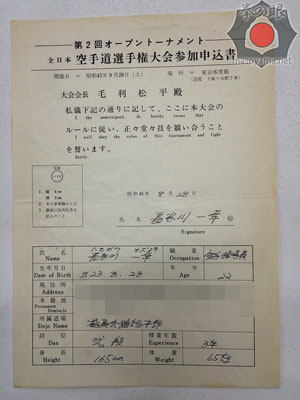 第2回オープントーナメント
全日本 空手道選手権大会参加申込書
開催日 = 昭和45年9月26日(土) 場所 = 東京体育館
(国電 千駄ヶ谷駅下車)
大会会長 毛利松平殿
私儀下記の通りに記して、ここに本大会の
I, the undersigned, do hereby swear that
ルールに従い、正々堂々技を競い合うこと
I will obey the rules of this tournament and fight
を誓います。
fairly.
昭和45年 8月 28日
氏名 長谷川 一幸 ㊞
Signature
1. 縦 4cm
横 3cm
氏名 Name ハセガワ カズユキ 長谷川 一幸 職業 Occupation
生年月日 Date of Birth 年令 Age 22
現住所 Address
本籍地 Permanent Domicile
所属道場 Dojo Name
段位 Dan 弐段 稽古年数 Experience 3年
身長 Height 165cm 体重 Weight 65kg
www.hasoyami.com